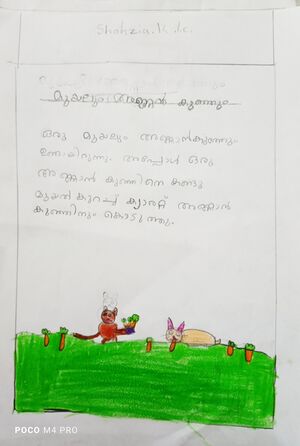 Shahzia.K.c.
മുയലും അണ്ണാൻ കുഞ്ഞും
ഒരു മുയലും അണ്ണാൻകുഞ്ഞും
ഉണ്ടായിരുന്നു. അപ്പോൾ ഒരു
അണ്ണാൻ കുഞ്ഞിനെ കണ്ടു
മുയൽ കുറച്ച് ക്യാരറ്റ് അണ്ണാൻ
കുഞ്ഞിനും കൊടുത്തു.
POCO M4 PRO